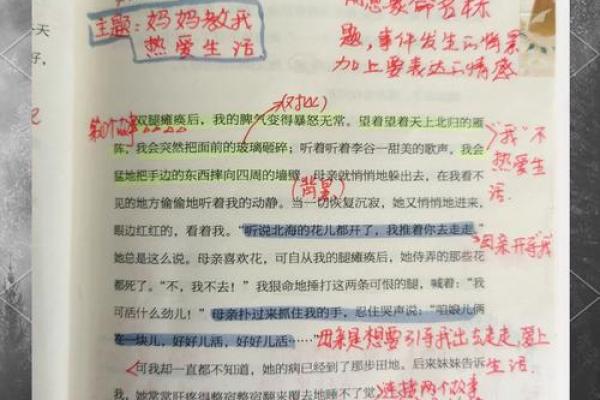 主题：妈妈教我
热爱生活
题，事件发生的情景
加上要表达的情感
一天
好，
(对比)
双腿瘫痪后，我的脾气变得暴怒无常。望着望着天上北归的雁
阵，我会突然把面前的玻璃砸碎；听着听着李谷一甜美的歌声，我会
猛地把手边的东西摔向四周的墙壁。母亲就悄悄地躲出去，在我看不
(背景)
见的地方偷偷地听着我的动静。当一切恢复沉寂，她又悄悄地进来，
眼边红红的，看着我。“听说北海的花儿都开了，我推着你去走走。”
她总是这么说。母亲喜欢花，可自从我的腿瘫痪后，她侍弄的那些花
都死了。“不，我不去！”我狠命地捶打这两条可恨的腿，喊着：“我
可活什么劲儿！”母亲扑过来抓住我的手，忍住哭声说：“咱娘儿俩
在一块儿，好好儿活，好好儿活……”
“我”不
热爱生
活.
母亲开导我
母亲是想要引导我出去走走，爱上
生活.
可我却一直都不知道，她的病已经到了那步田地。后来妹妹告诉
我，她常常肝疼得整宿整宿翻来覆去地睡不了觉
连接两个故事